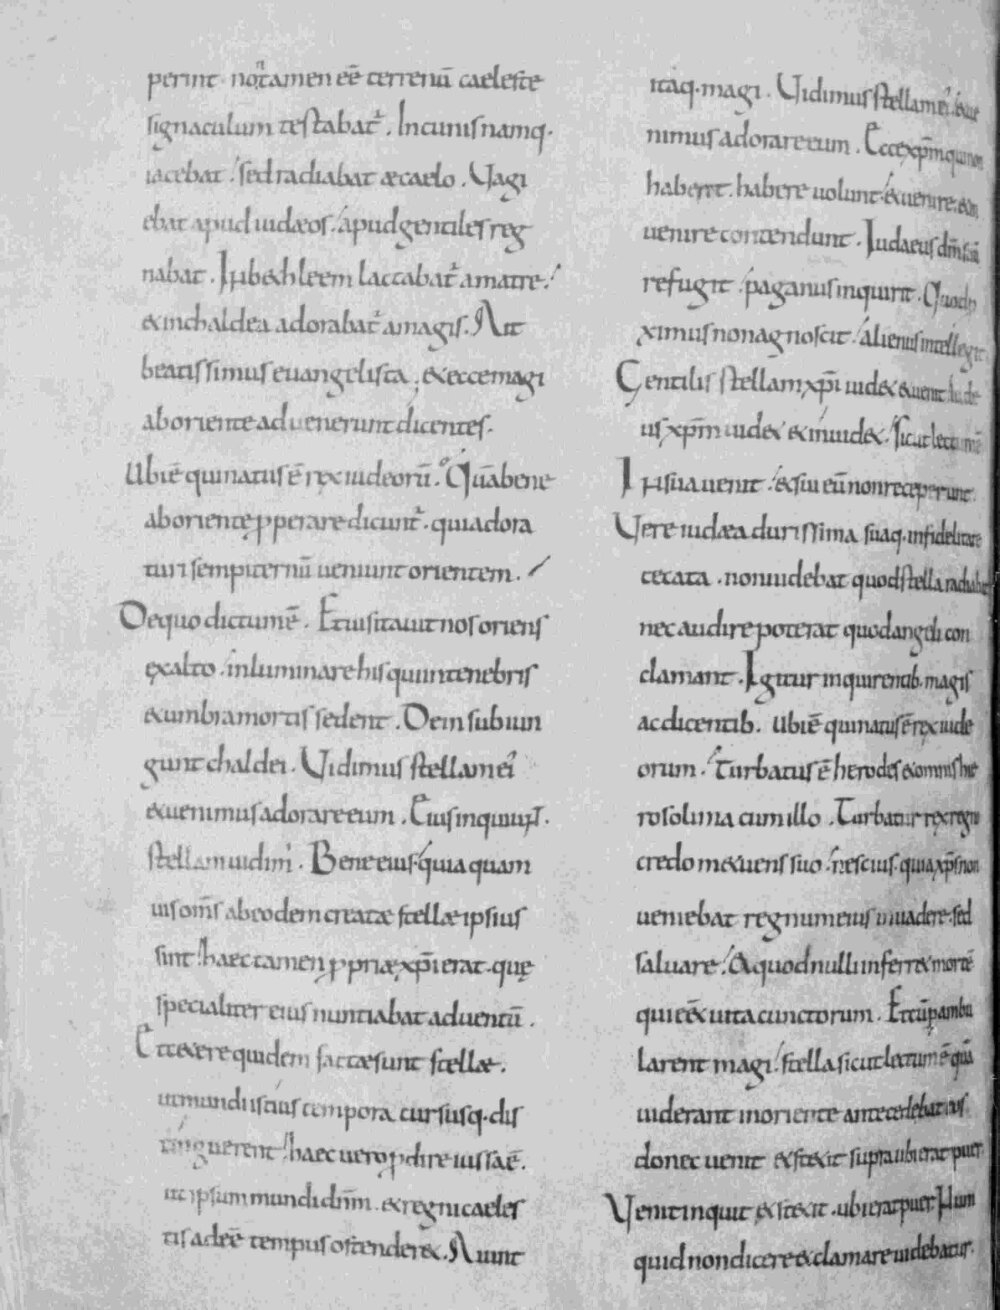 perint· nō tamen eē terrenū caeleste
signaculum testabat᷑. In cunis namq·
iacebat· sed radiabat æ caelo. Vagi
ebat apud iudæos· apud gentiles reg
nabat. In bethleem lactabat᷑ a matre·
& in chaldea adorabat᷑ a magis. Ait
beatissimus euangelista· & ecce magi
ab oriente aduenerunt dicentes·
Ubi ē qui natus ē rex iudeorū· Quā bene
ab oriente pperare dicunt᷑· qui adora
turi sempiternū ueniunt orientem·
De quo dictum ē. Et uisitauit nos oriens
ex alto· inluminare his qui in tenebris
& umbra mortis sedent. Dein subiun
gunt chaldei. Vidimus stellam ei᷑
& uenimus adorare eum. Eius inquiunt·
stellam uidim᷑. Bene eius· quia quam
uis om̄s ab eodem creatæ stellæ ipsius
sint· haec tamen ppriæ xp̄i erat· quę
specialiter eius nuntiabat aduentū.
Et ceteræ quidem factæ sunt stellæ·
ut mundi istius tempora cursusq· dis
tinguerent· haec uero pdire iussa ē·
ut ipsum mundi dn̄m· & regni caeles
tis adeē tempus ostenderet. Aiunt
itaq· magi. Vidimus stellam ei᷑· & ue
nimus adorare eum. Ecce xp̄m qui non
haberet· habere uolunt· & uenire·
uenire contendunt. Iudaeus dn̄m suū
refugit· paganus inquirit. Quod p
ximus non agnoscit· alienus intellegit
Gentilis stellam xp̄i uidet & uenit· iude
us xp̄m uidet & inuidet· sicut lectum ē
In sua uenit· & sui eū non receperunt·
Vere iudæa durissima suaq· infidelitate
cecata· non uidebat quod stella radiabat
nec audire poterat quod angeli con
clamant. Igitur inquirentib· magis
ac dicentib· ubi ē qui natus ē rex iude
orum· Turbatus ē herodes & omnis hie
rosolima cum illo. Turbatur rex regno
credo metuens suo· nescius· quia xp̄s non
ueniebat regnum eius inuadere· sed
saluare· & quod nulli inferret mortē
qui eēt uita cunctorum. Et cū pambu
larent magi· stella sicut lectum ē quā
uiderant in oriente antecedebat eos
donec uenit & stetit supra ubi erat puer
Venit inquit & stetit· ubi erat puer· Hunc
quid non dicere & clamare uidebatur·